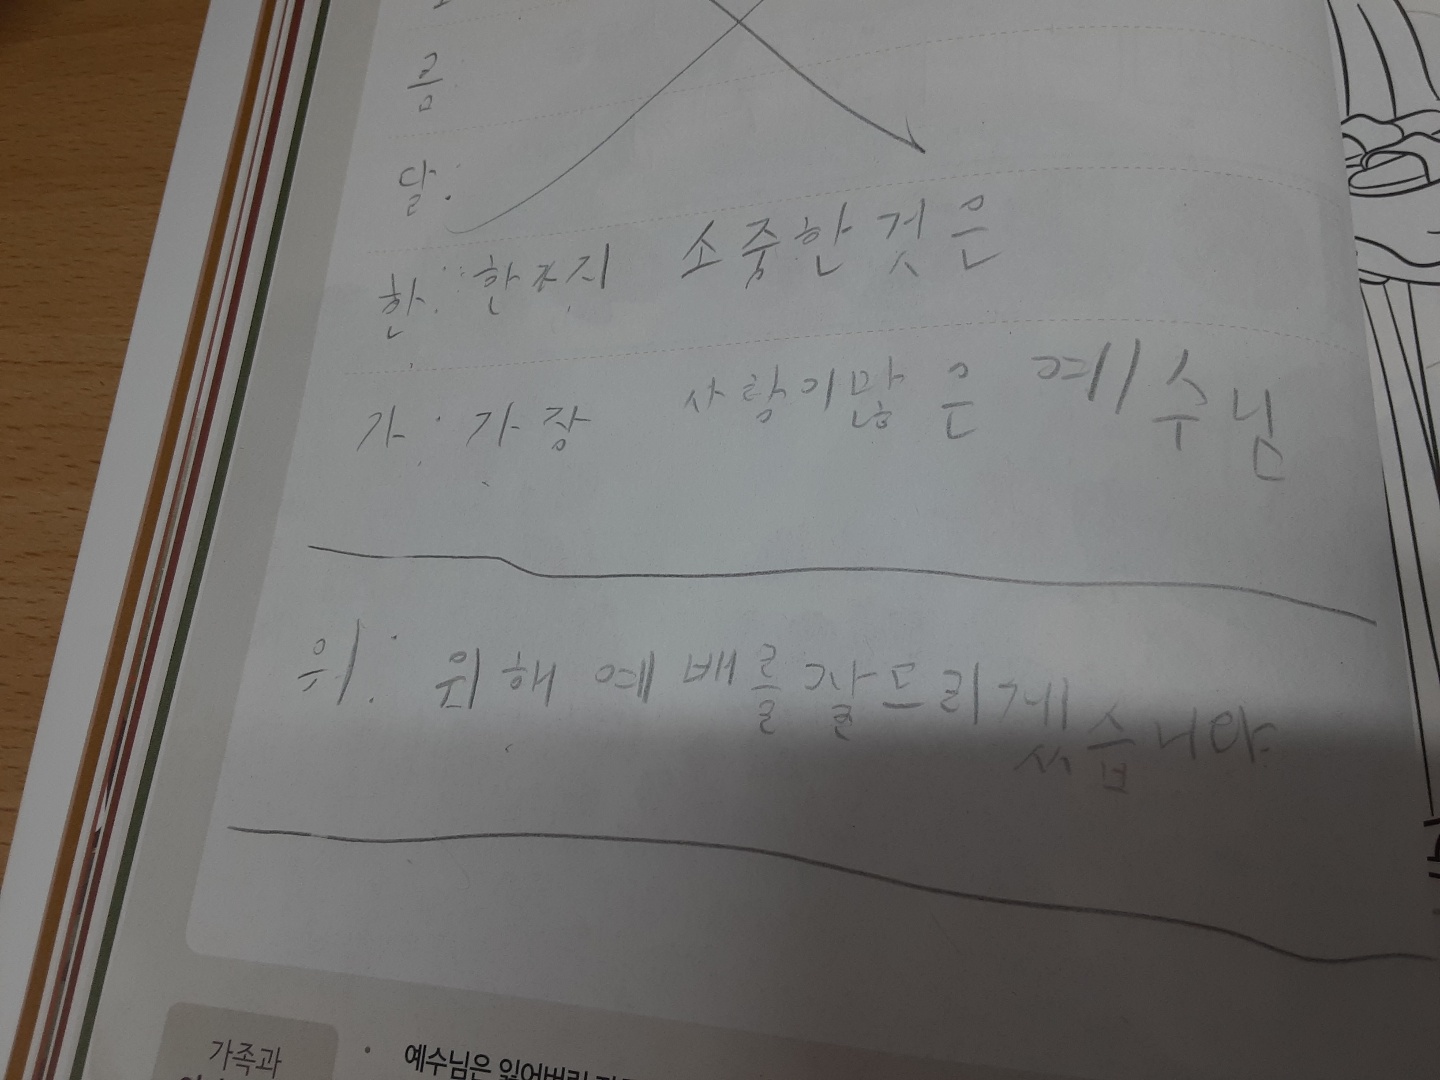 름
달:
한: 한가지 소중한것은
가: 가장 사랑이많은 예수님
위: 위해 예배를 잘드리겠습니다
가족과
예수님은 잃어버린